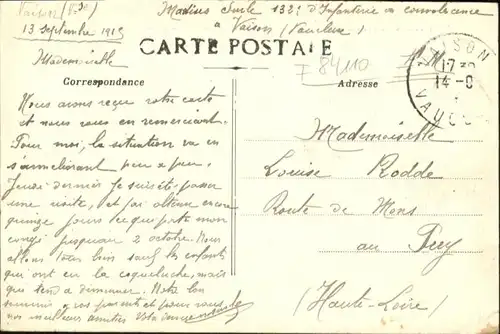 Vaison (Vse)
13 Septembre 1915
Marius 132e d'Infanterie en convalescence
à Vaison (Vaucluse)
CARTE POSTALE
F 84110
VAISON
17
14-9
VAUCLUSE
Mademoiselle
Correspondance
Adresse
Nous avons reçu votre carte
et nous vous en remercions.
Pour moi, la situation va en
s'améliorant peu à peu.
Jeudi dernier je suis été passer
une visite, et j'ai obtenu encore
quinze jours ce que porte mon
congé jusqu'au 2 octobre. Nous
allons tous bien sauf les enfants
qui ont eu la coqueluche, mais
que tend a diminuer. Notre bon
souvenir a vos parents et pour vous
nos meilleurs amitiés
Mademoiselle
Louise Rodde
Route de Mons
au Puy
(Haute-Loire)